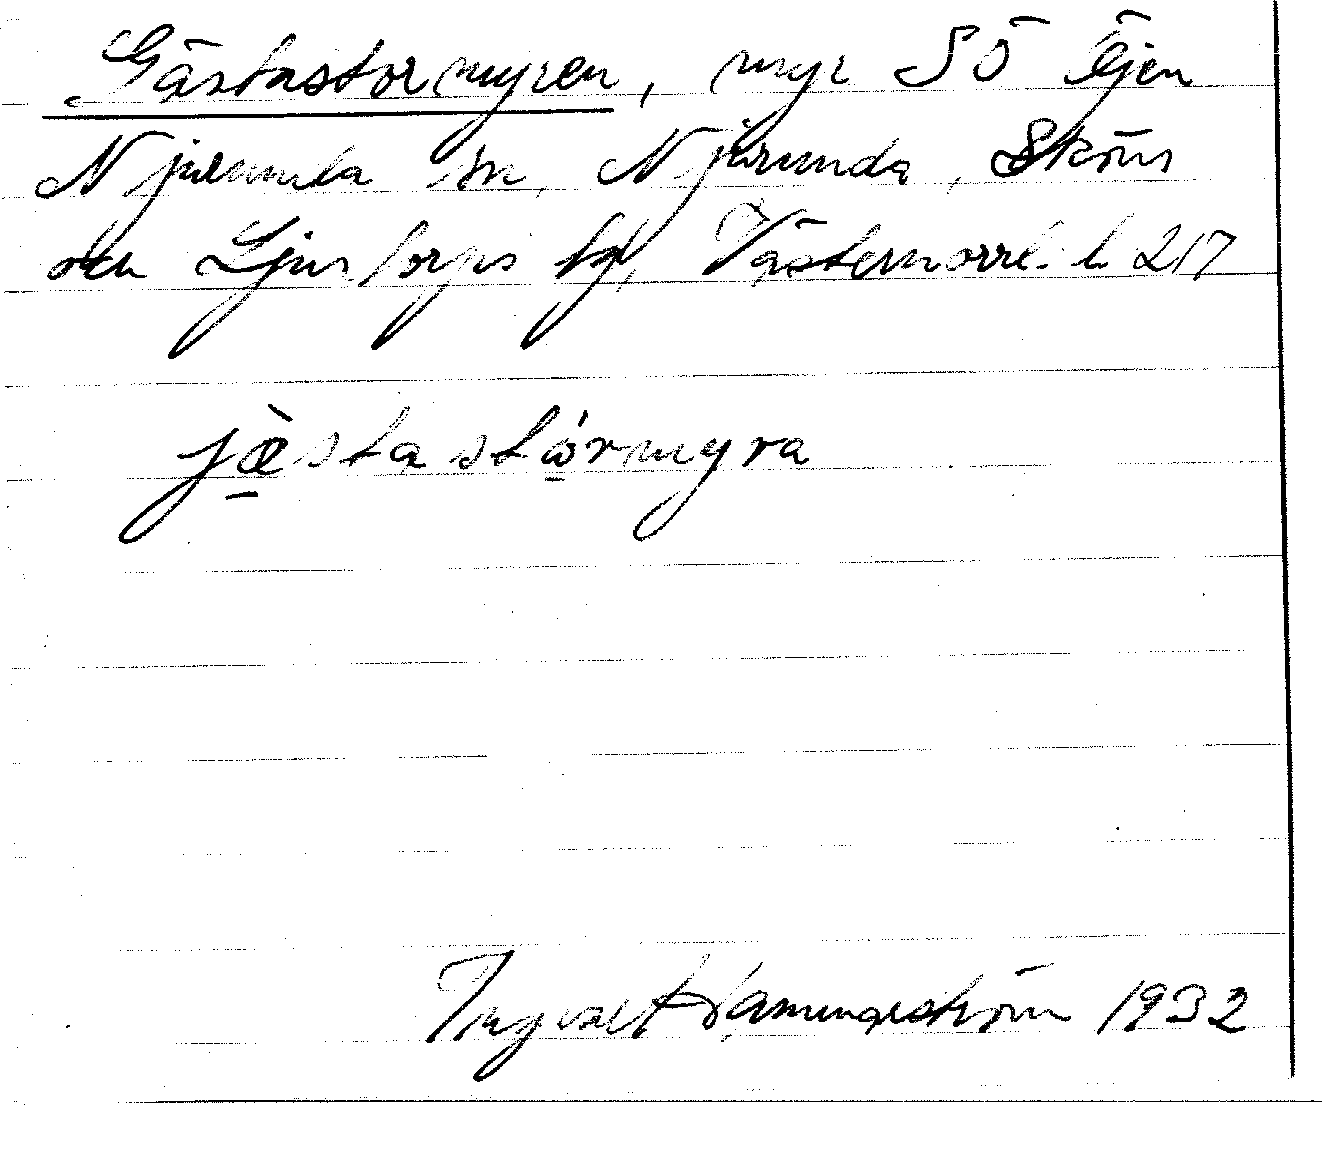 Gästastormyren, myr SÖ Öjen
Njurunda sn, Njurunda, Sköns
och Ljustorps tgl, Västernorrl. l 217
jæ̀stastórmyra
Ingvald Hammarström 1932